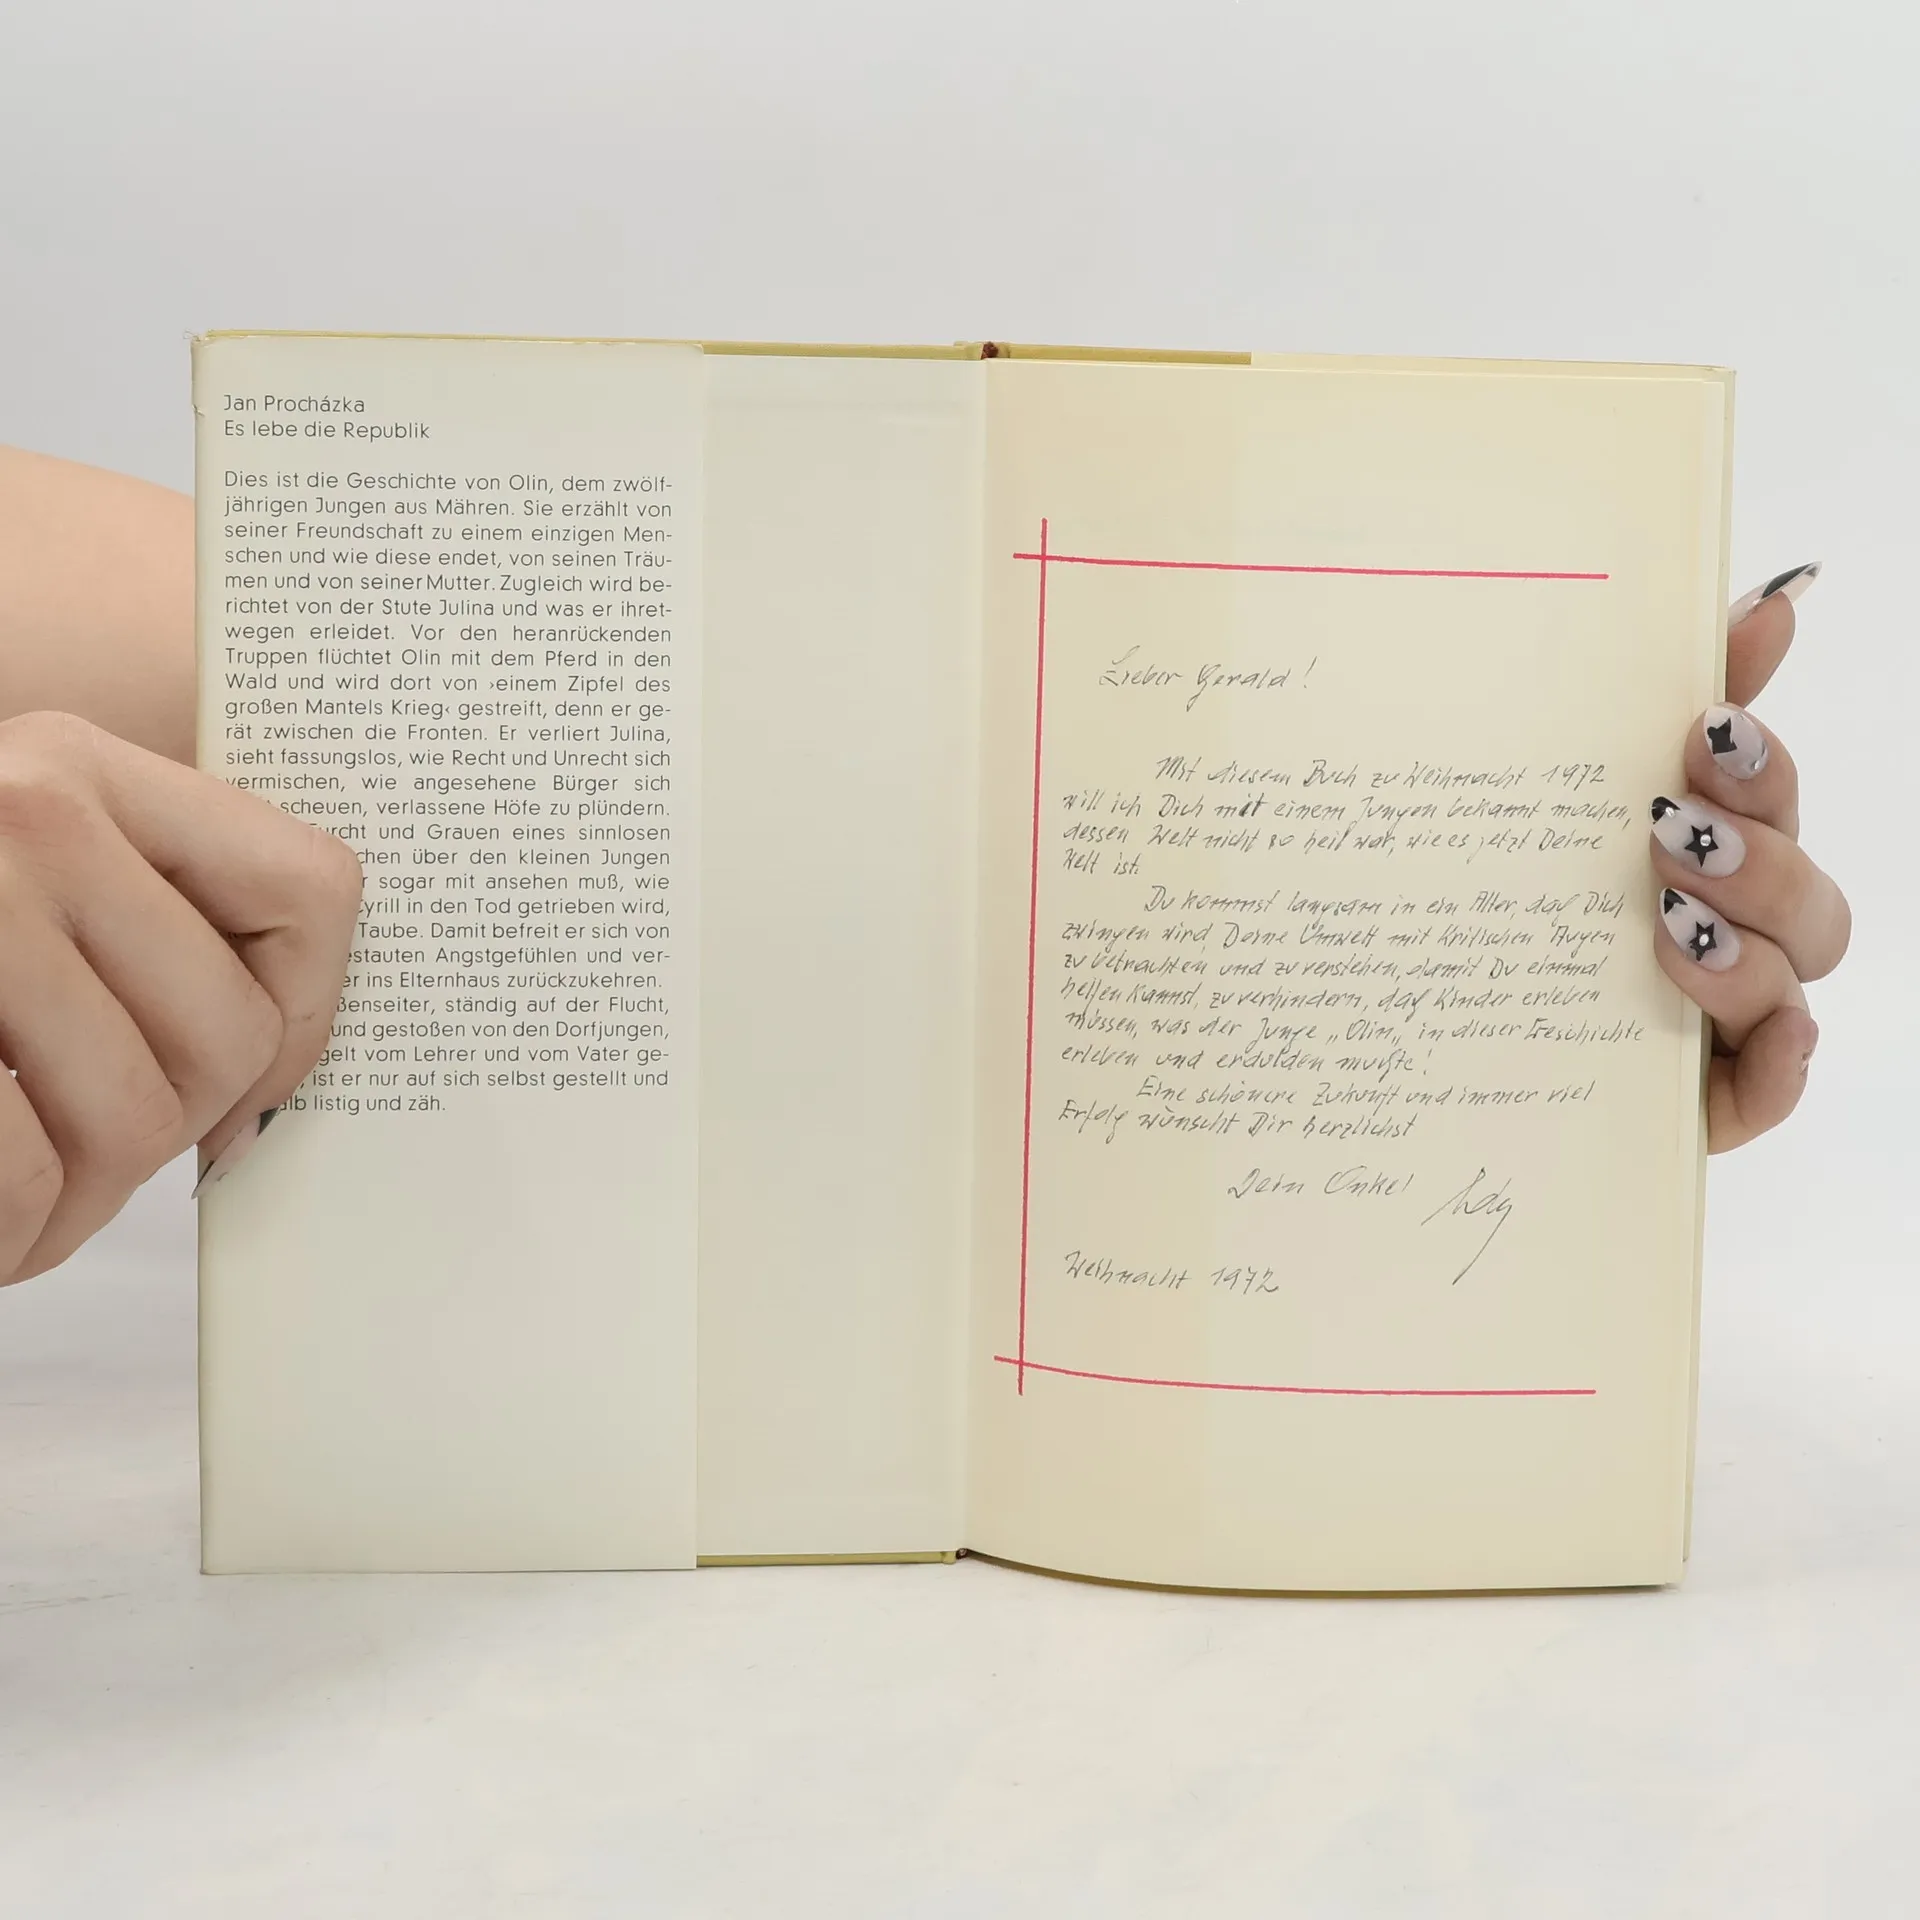 Jan Procházka
Es lebe die Republik
Dies ist die Geschichte von Olin, dem zwölf-
jährigen Jungen aus Mähren. Sie erzählt von
seiner Freundschaft zu einem einzigen Men-
schen und wie diese endet, von seinen Träu-
men und von seiner Mutter. Zugleich wird be-
richtet von der Stute Julina und was er ihret-
wegen erleidet. Vor den heranrückenden
Truppen flüchtet Olin mit dem Pferd in den
Wald und wird dort von ›einem Zipfel des
großen Mantels Krieg‹ gestreift, denn er ge-
rät zwischen die Fronten. Er verliert Julina,
sieht fassungslos, wie Recht und Unrecht sich
vermischen, wie angesehene Bürger sich
scheuen, verlassene Höfe zu plündern.
Furcht und Grauen eines sinnlosen
chen über den kleinen Jungen
r sogar mit ansehen muß, wie
Cyrill in den Tod getrieben wird,
Taube. Damit befreit er sich von
estauten Angstgefühlen und ver-
er ins Elternhaus zurückzukehren.
ßenseiter, ständig auf der Flucht,
und gestoßen von den Dorfjungen,
gelt vom Lehrer und vom Vater ge-
, ist er nur auf sich selbst gestellt und
alb listig und zäh.
Lieber Gerald!
Mit diesem Buch zu Weihnacht 1972
will ich Dich mit einem Jungen bekannt machen,
dessen Welt nicht so heil war, wie es jetzt Deine
Welt ist.
Du kommst langsam in ein Alter, daß Dich
zwingen wird, Deine Umwelt mit kritischen Augen
zu betrachten und zu verstehen, damit Du einmal
helfen kannst, zu verhindern, daß Kinder erleben
müssen, was der Junge „Olin„ in dieser Geschichte
erleben und erdulden mußte!
Eine schönere Zukunft und immer viel
Erfolg wünscht Dir herzlichst
Dein Onkel
Weihnacht 1972